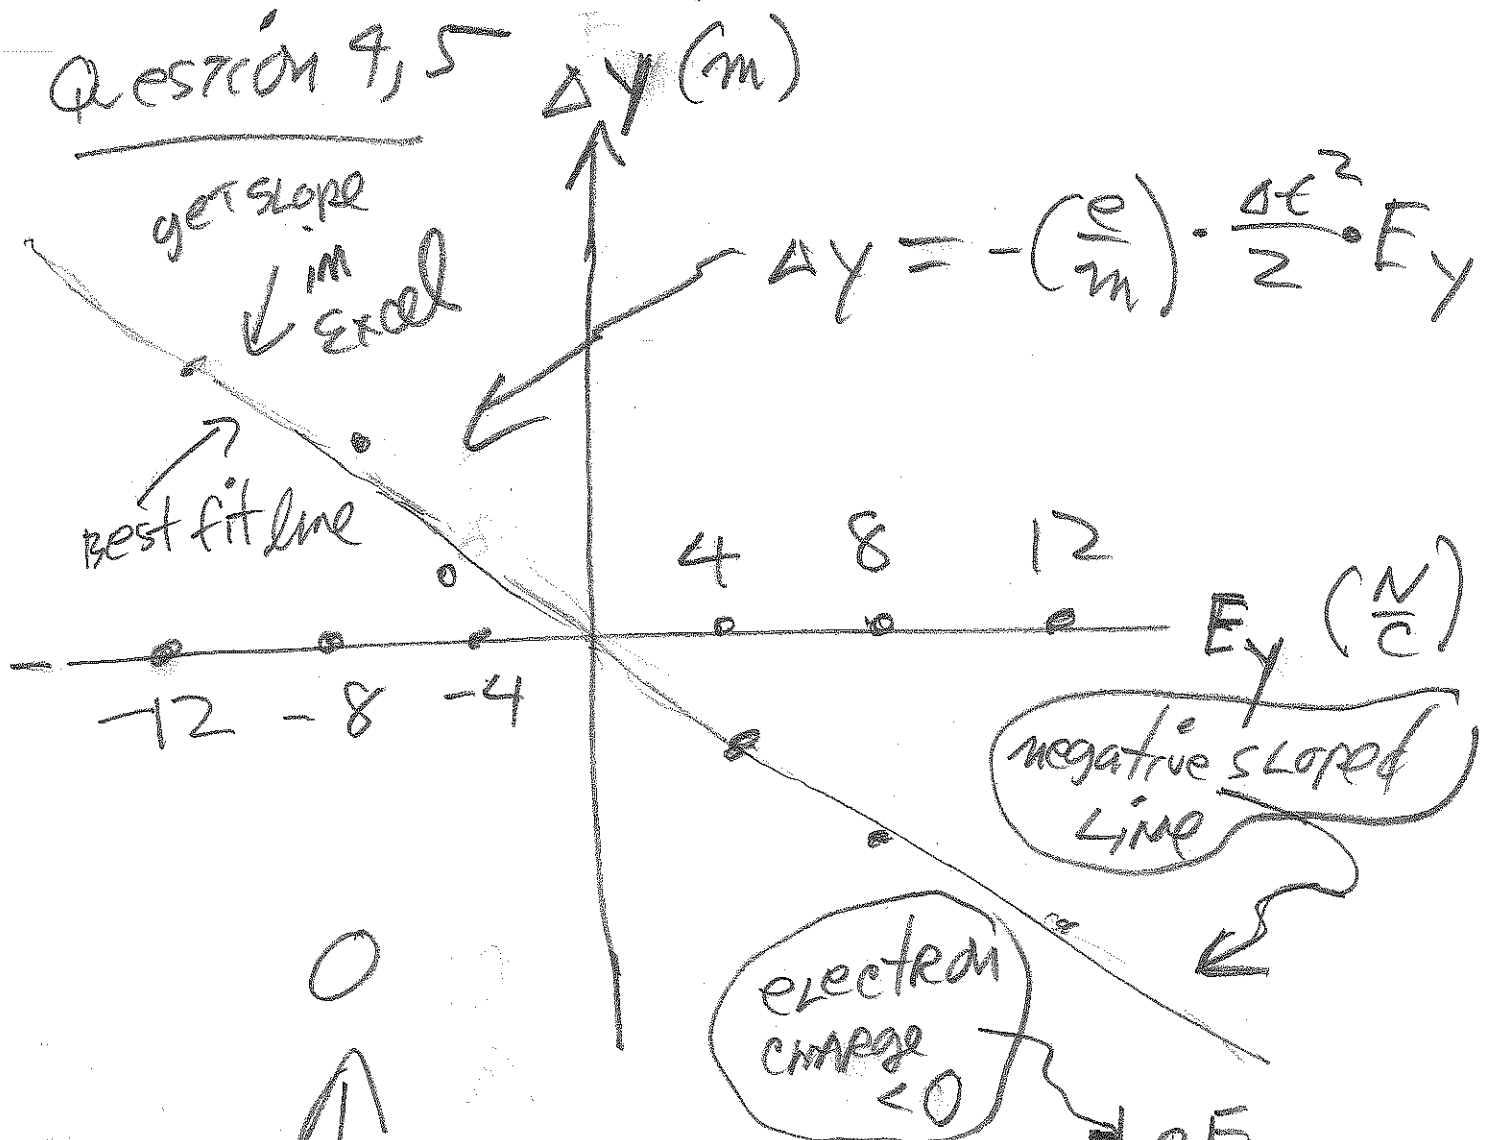 Question 4, 5
Δy (m)
get slope
in
Excel
Δy = -(e/m) · Δt²/2 · Ey
Best fit line
4 8 12
Ey (N/C)
-12 -8 -4
negative sloped
Line
electron
charge
<0